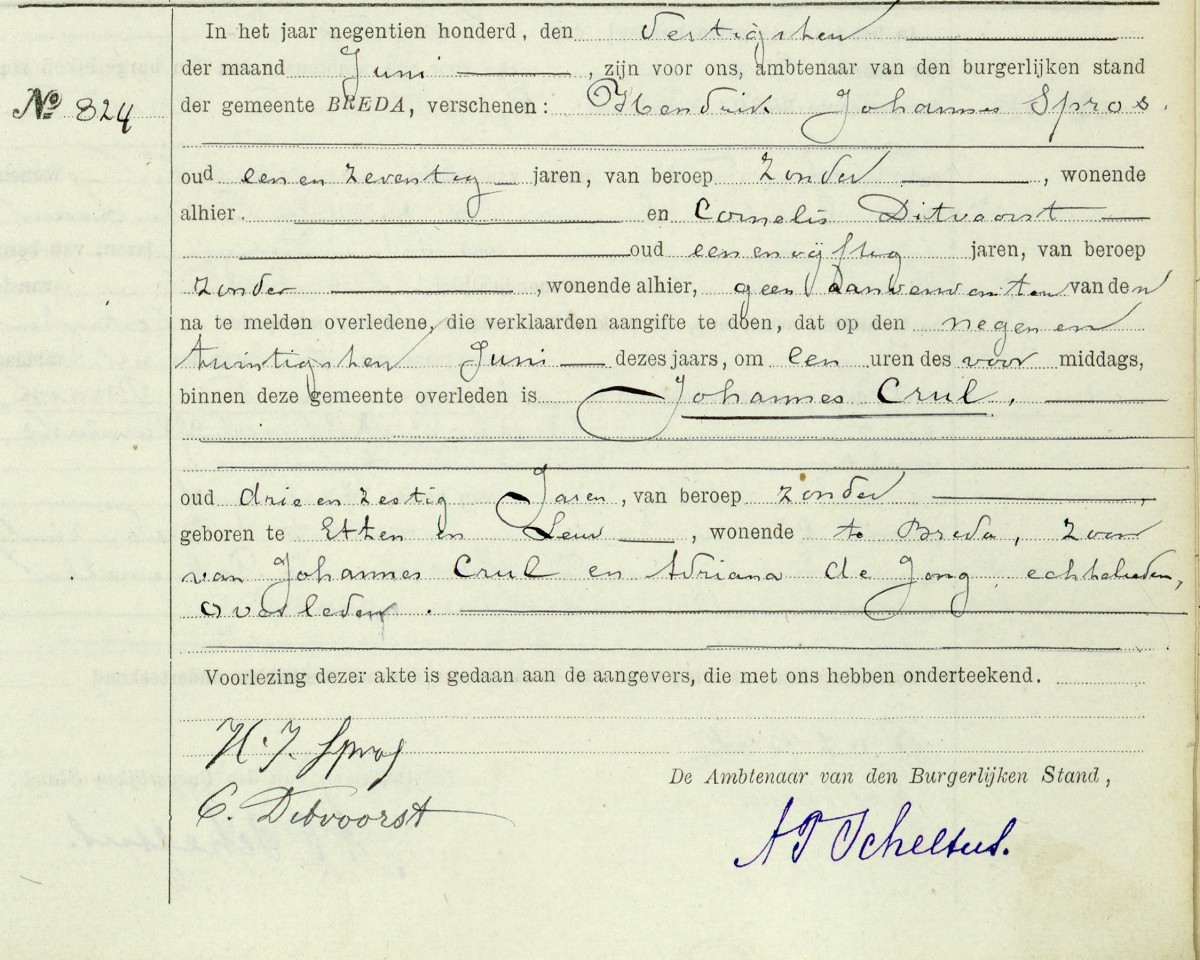 In het jaar negentien honderd, den dertigsten
der maand Juni, zijn voor ons, ambtenaar van den burgerlijken stand
№ 324
der gemeente BREDA, verschenen: Hendrik Johannes Spros.
oud een en zeventig jaren, van beroep zonder, wonende
alhier en Cornelis Ditvoorst
oud een en vijftig jaren, van beroep
zonder, wonende alhier, geen aanverwanten van den
na te melden overledene, die verklaarden aangifte te doen, dat op den negen en
twintigsten Juni dezes jaars, om een uren des voor middags,
binnen deze gemeente overleden is Johannes Crul,
oud drie en zestig Jaren, van beroep zonder,
geboren te Etten en Leur, wonende te Breda, zoon
van Johannes Crul en Adriana de Jong, echtelieden,
overleden.
Voorlezing dezer akte is gedaan aan de aangevers, die met ons hebben onderteekend.
H. J. Spros
De Ambtenaar van den Burgerlijken Stand,
C. Ditvoorst